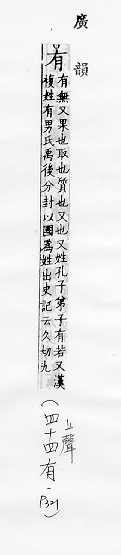 廣韻
有 有無又果也取也質也又也又姓孔子弟子有若又漢
複姓有男氏禹後分封以國為姓出史記云久切九
上聲
(四十四有-P321)